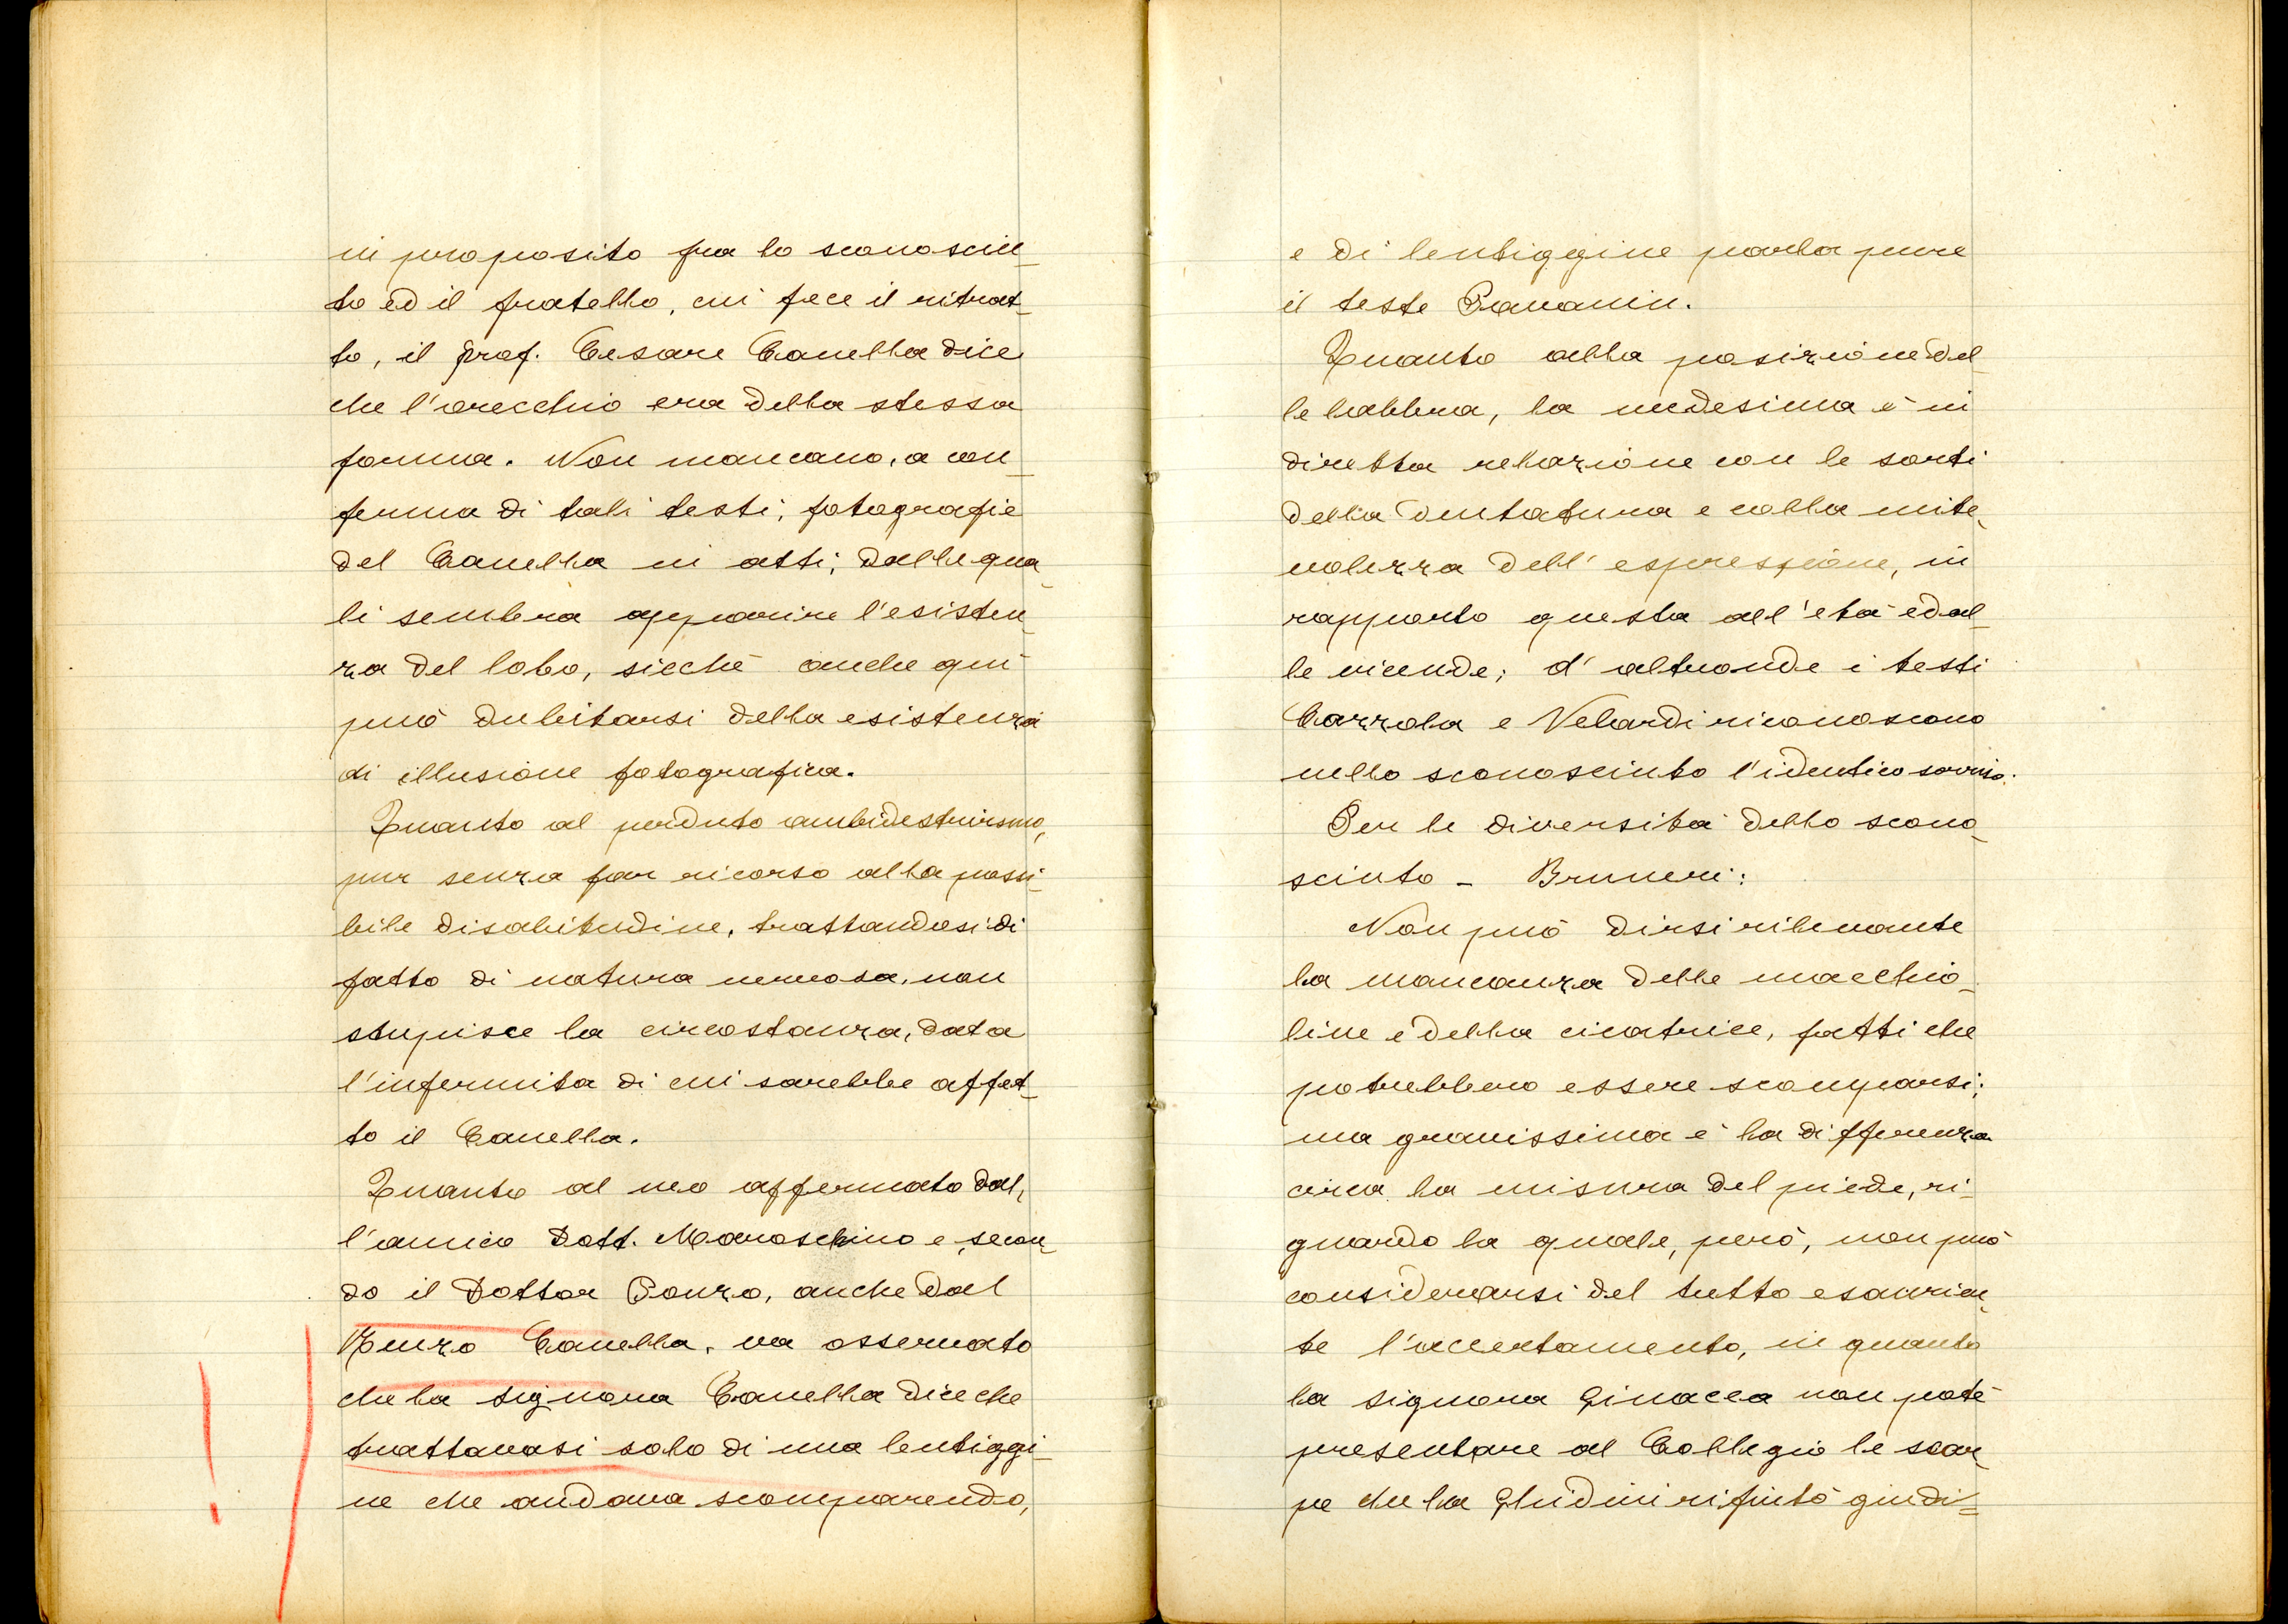 in proposito fra lo sconosciu_
to ed il fratello, cui fece il ritrat_
to, il prof. Cesare Canella dice
che l'orecchio era della stessa
forma. Non mancano, a con_
ferma di tali testi, fotografie
del Canella in atti, dalle qua_
li sembra apparire l'esisten_
za del lobo, sicchè anche qui
può dubitarsi della esistenza
di illusione fotografica.
Quanto al perduto ambidestrismo,
pur senza far ricorso alla possi_
bile disabitudine, trattandosi di
fatto di natura nervosa, non
stupisce la circostanza, data
l'infermità di cui sarebbe affet_
to il Canella.
Quanto al neo affermato dal_
l'amico Dott. Maraschino e, secon_
do il Dottor Ponzo, anche dal
Renzo Canella, va osservato
che la signora Canella dice che
trattavasi solo di una lentiggi_
ne che andava scomparendo,
e di lentiggine parla pure
il teste Pavanin.
Quanto alla posizione del_
le labbra, la medesima è in
diretta relazione con le sorti
della dentatura e colla mite_
volezza dell'espressione, in
rapporto questa all'età ed al_
le vicende; d'altronde i testi
Cazzola e Velardi riconoscono
nello sconosciuto l'identico sorriso.
Per le diversità dello scono_
sciuto - Bruneri:
Non può dirsi rilevante
la mancanza delle macchio_
line e della cicatrice, fatti che
potrebbero essere scomparsi;
ma gravissima è la differenza
circa la misura del piede, ri_
guardo la quale, però, non può
considerarsi del tutto esaurien_
te l'accertamento, in quanto
la signora Ginacca non potè
presentare al Collegio le scar_
pe che la Ghidini rifiutò giudi=